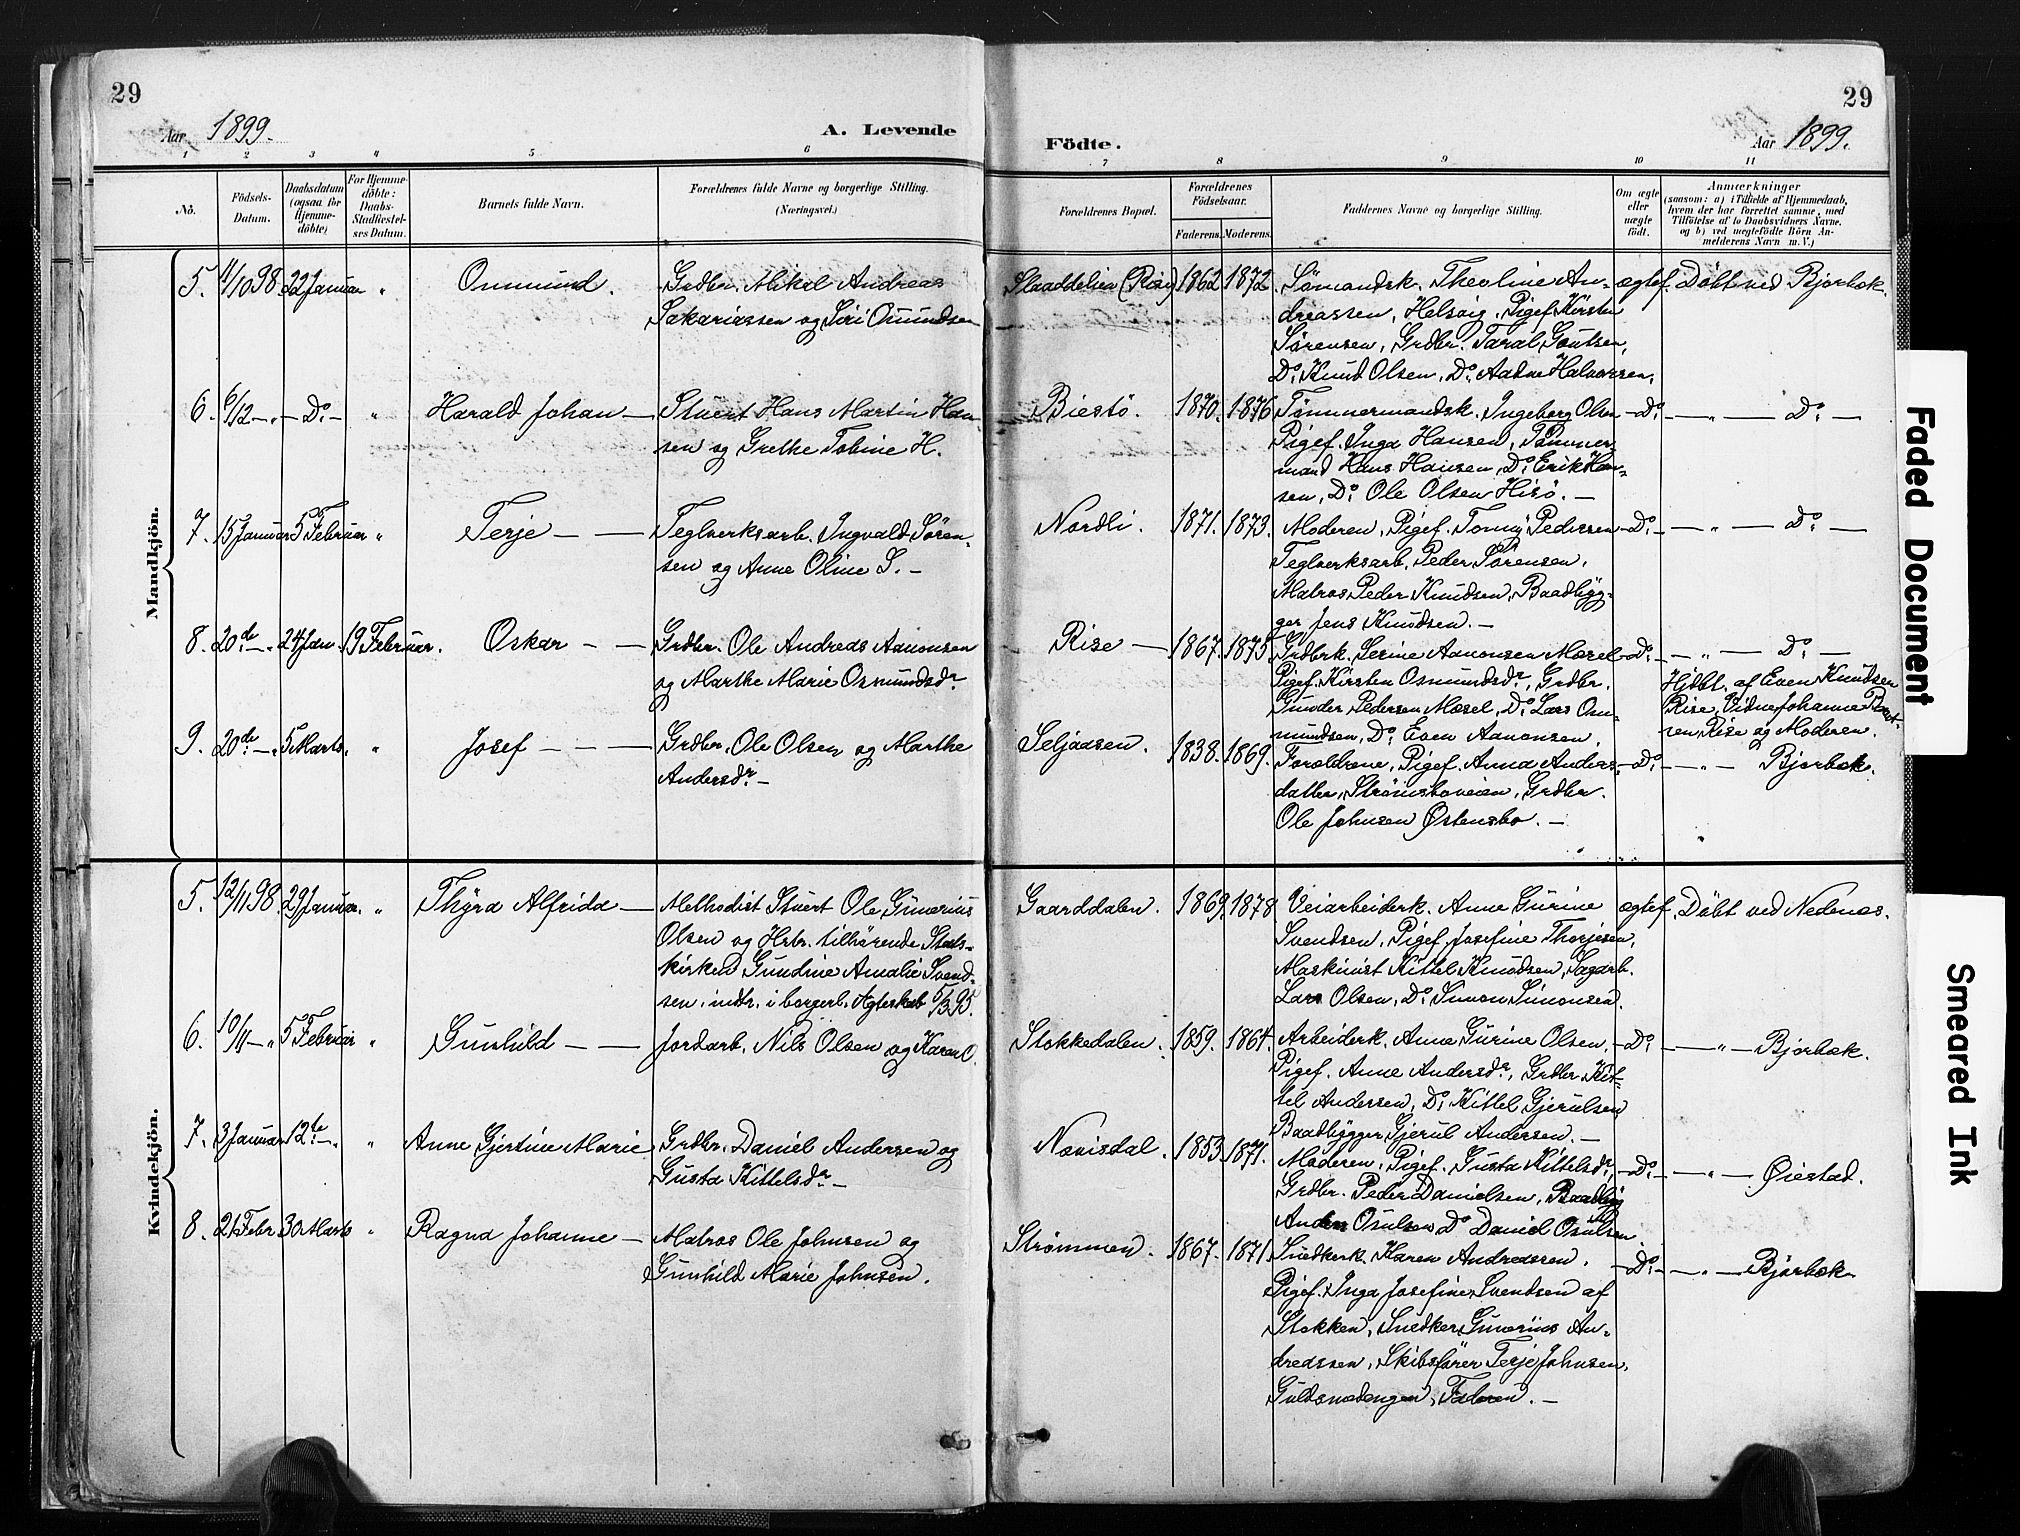 29
29
Aar 1899.
A. Levende
Födte.
Aar 1899.
1 2 3 4 5 6 7 8 9 10 11
No.
Födsels-
Datum.
Daabsdatum
(ogsaa for
Hjemme-
döbte)
For Hjemme-
döbte:
Daabs-
Stadfæstel-
ses Datum.
Barnets fulde Navn.
Forældrenes fulde Navne og borgerlige Stilling.
(Næringsvei.)
Forældrenes Bopæl.
Forældrenes
Födselsaar.
Faderens. Moderens.
Faddernes Navne og borgerlige Stilling.
Om ægte
eller
uægte
födt.
Anmærkninger
(saasom: a) i Tilfælde af Hjemmedaab,
hvem der har forrettet samme, med
Tilföielse af to Daabsvidners Navne,
og b) ved uægtefödte Börn An-
melderens Navn m. V.)
Mandkjön.
5. 11/10 98. 22 Januar " Osmund. Grdbr. Mikal Andreas
Sakariassen og Siri Osmundsen
1862 1872. Sømandsk. Theoline An-
dreassen, Helsvig, Pigef. Kirsten
Sørensen, Grdbr. Taral Gautsen,
Do. Knud Olsen, Do. Aadne Halvorsen.
ægtef. Døbt ved Bjorbæk.
6. 6/12 - " - Do. - " Harald Johan - Stuert Hans Martin Han-
sen og Grethe Tobine H.
Biestø. 1870. 1876 Tømmermandsk. Ingeborg Olsen
Pigef. Inga Hansen, Tømmer-
mand Hans Hansen, Do. Erik Han-
sen, Do. Ole Olsen Hisø. -
- Do. - " - Do. -
7. 15 Januar 5 Februar " Terje - - Teglverksarb. Ingvald Søren-
sen og Anne Oline S. -
Nordli. 1871. 1873. Moderen, Pigef. Tomy Pedersen
Teglverksarb. Peder Sørensen,
Matros Peder Knudsen, Baadbyg-
ger Jens Knudsen. -
- Do. - " - Do. -
8. 20de - " 24 Jan. 19 Februar. Oskar - - Grdbr. Ole Andreas Aanonsen
og Marthe Marie Osmundsdr.
Rise - 1867. 1875. Grdbrk. Serine Aanonsen Mæsel
Pigef. Kirsten Osmundsdr., Grdbr.
Gunder Pedersen Mæsel, Do. Lars Os-
mundsen, Do. Even Aanonsen.
- Do. - " - Do. -
Hjdbt. af Even Knudsen
Rise, Vidne Johanne
Rise og Moderen.
9. 20de - " 5 Marts. " Josef - - - Grdbr. Ole Olsen og Marthe
Andersdr. -
Seljaasen. 1838. 1869. Forældrene, Pigef. Anna Anders-
datter, Strømsboveien, Grdbr.
Ole Johnsen Østensbo. -
- Do. - " - Bjorbæk.
Kvindekjön.
5. 12/11 98. 29 Januar. " Thyra Alfrida - Methodist Stuert Ole Gunerius
Olsen og Hsbr. tilhørende Stats-
kirken Gundine Amalie Svend-
sen, indtr. i borgerl. Ægteskab 5/3 95.
Gaarddalen. 1869. 1878. Veiarbeiderk. Anne Gurine
Svendsen, Pigef. Josefine Thorjesen,
Maskinist Kittel Knudsen, Sagarb.
Lars Olsen, Do. Simon Simonsen.
ægtef. Døbt ved Nedenæs.
6. 10/11 - " 5 Februar " Gunhild - - Jordarb. Nils Olsen og Karen O.
Stokkedalen. 1859. 1864. Arbeiderk. Anne Gurine Olsen.
Pigef. Anne Andersdr., Grdbr. Kit-
tel Andersen, Do. Kittel Gjerulsen
Baadbygger Gjerul Andersen. -
- Do. - " - Bjorbæk.
7. 3 Januar 12te - " " Anne Gjertine Marie Grdbr. Daniel Andersen og
Gusta Kittelsdr. -
Nævisdal. 1853. 1871. Moderen, Pigef. Gusta Kittelsdr.
Grdbr. Peder Danielsen, Baadbyg
Anders Osulsen, Do. Daniel Osulsen.
- Do. - " - Øiestad.
8. 21 Febr. 30 Marts " Ragna Johanne - Matros Ole Johnsen og
Gunhild Marie Johnsen.
Strømmen. 1867. 1871. Snedkerk. Karen Andreassen.
Pigef. Inga Josefine Svendsen af
Stokken, Snedker Gunerius An-
dreassen, Skibsfører Terje Johnsen,
Guldsmedengen, Faderen. -
- Do. - " - Bjorbæk.
Faded Document
Smeared Ink